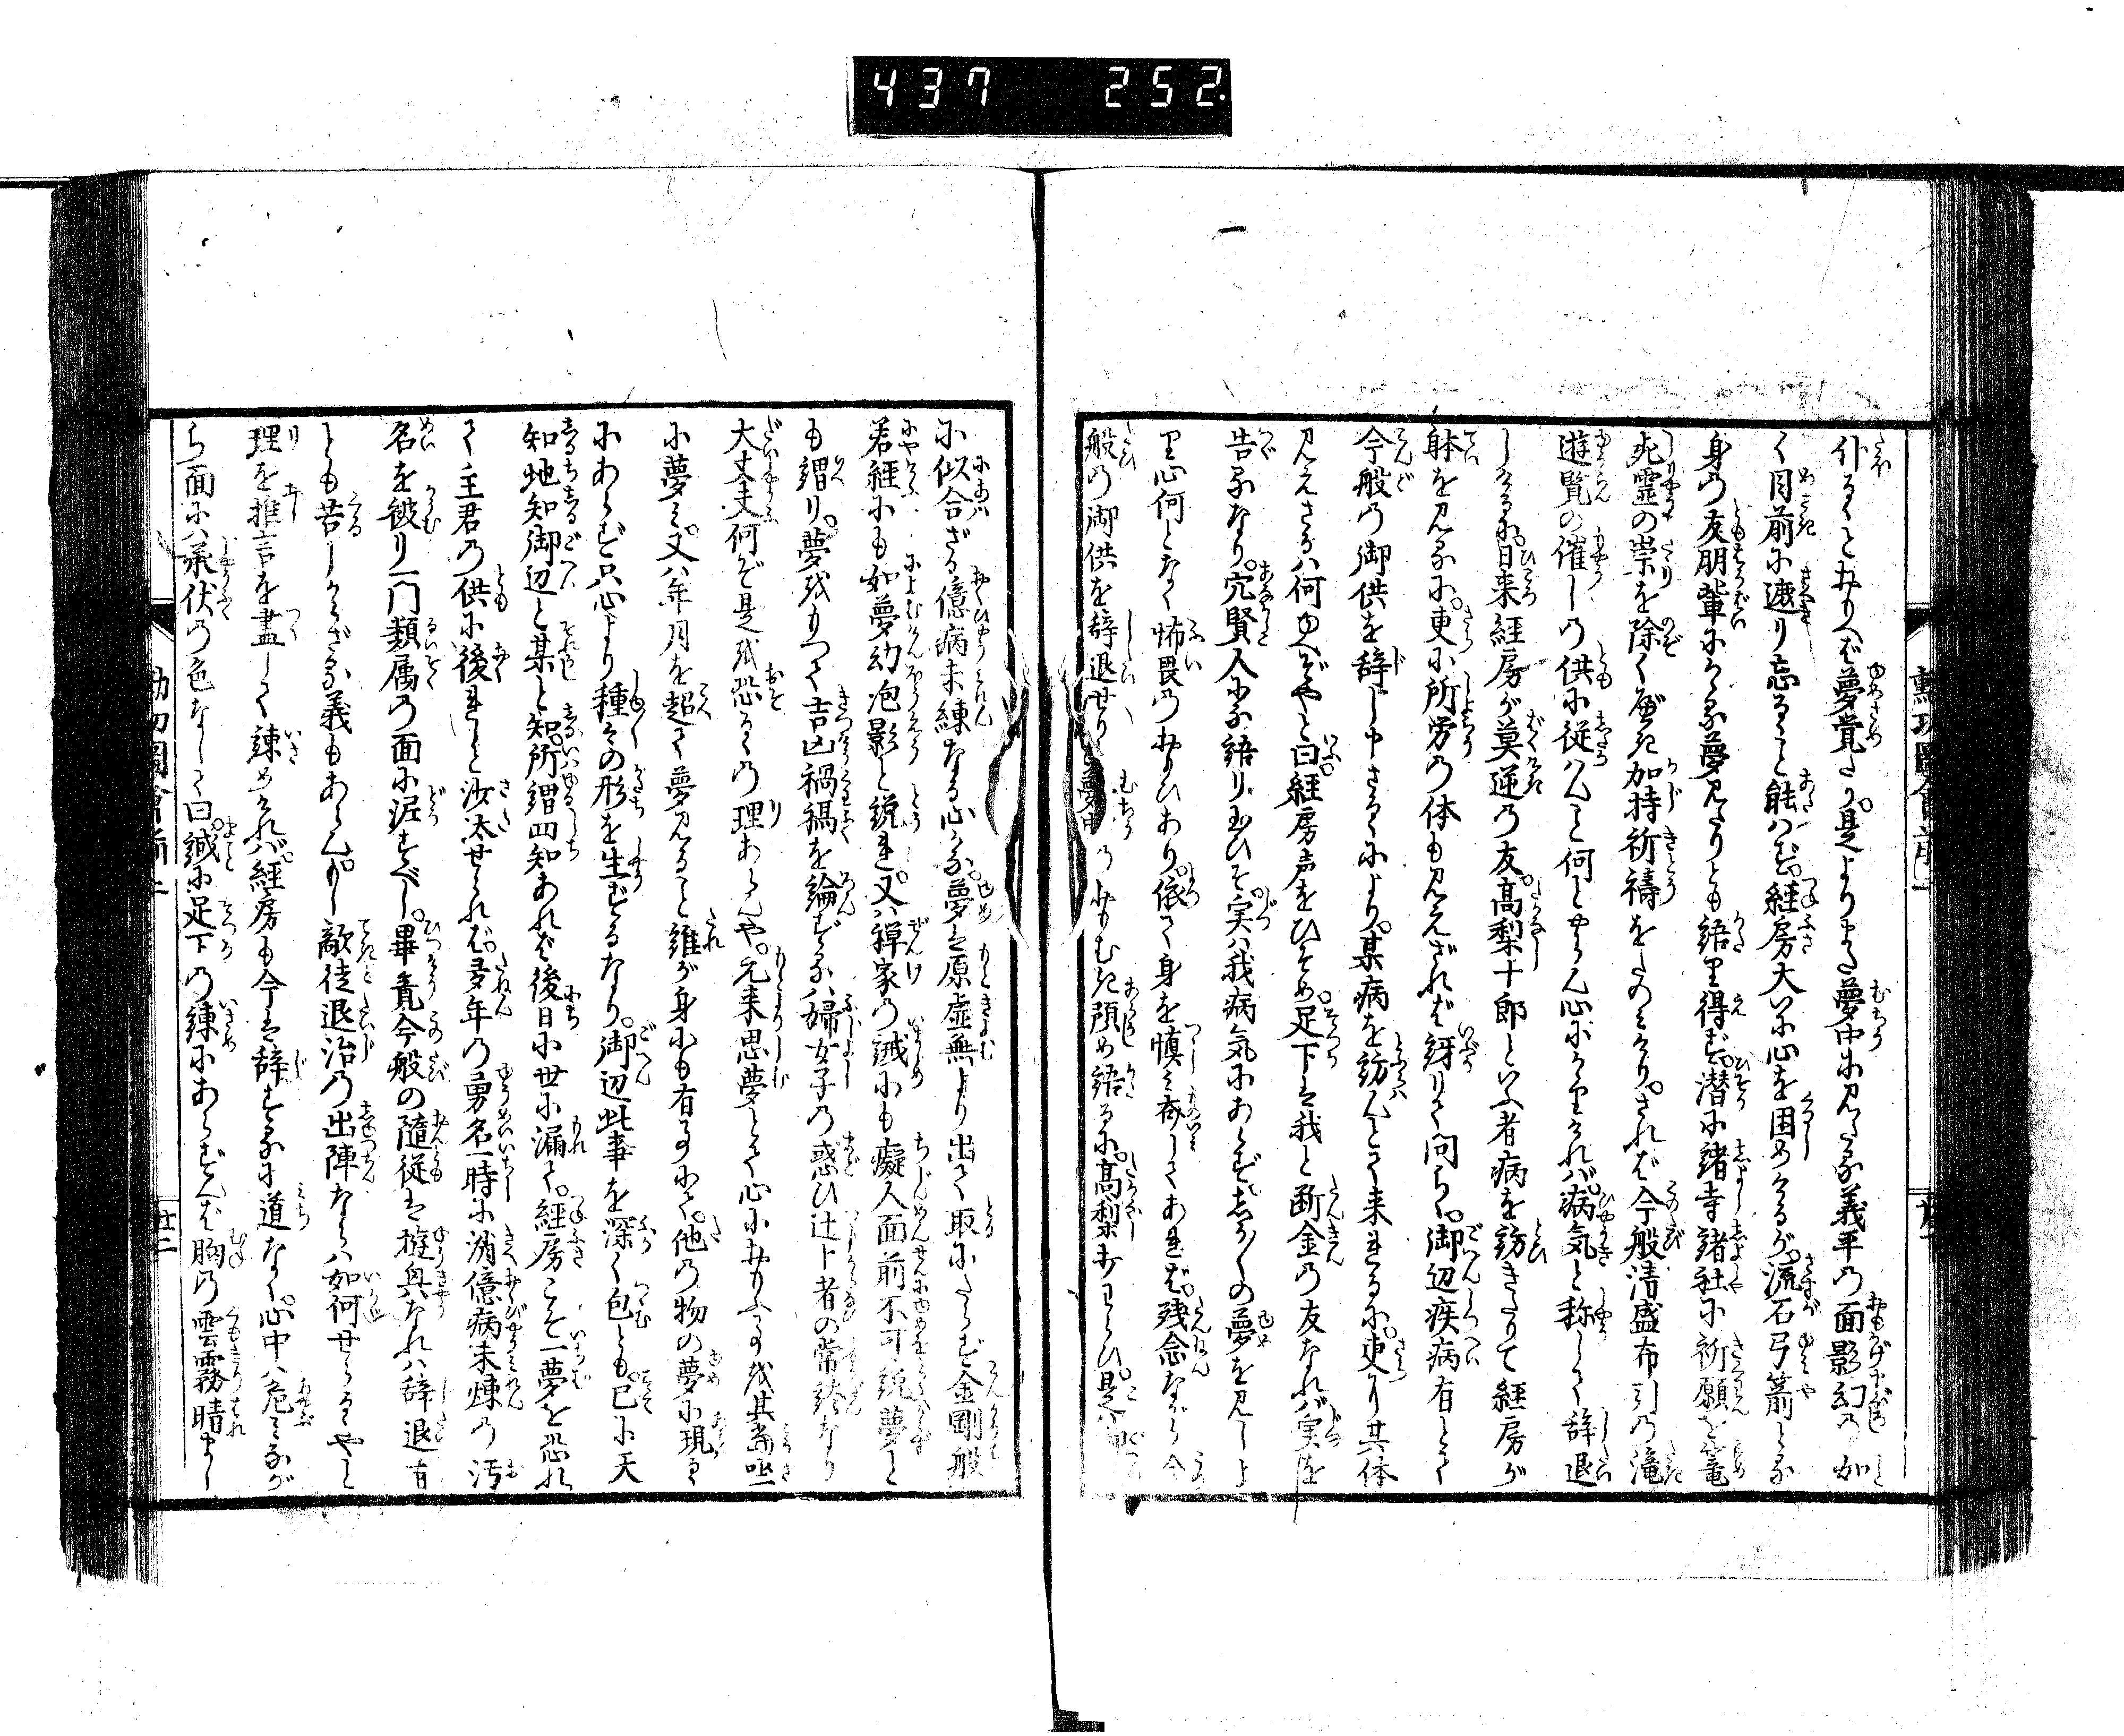 437 252.
仆るゝとおもへば夢覚たり。是よりまた夢中に見たる義平の面影幻の如
く目前に遮り忘るゝこと能はず。経房大いに心を困めけるが。流石弓箭とる
身の友朋輩にかゝる夢見たりとも語り得ず。潜に諸寺諸社に祈願を篭
死霊の祟を除くべき加持祈祷をたのみけり。されば今般清盛布引の滝
遊覧の催しの供に従はんこと何とやらん心にかゝりければ病気と称して辞退
しけるに。日来経房が莫逆の友。高梨十郎といへる者病を訪きたりて経房が
躰を見るに。更に所労の体も見えざれば訝りて問ふ。御辺疾病有とて
今般の御供を辞し申さるゝにより。某病を訪んとて来れるに。更り其体
見えざるは何ゆへぞやと曰。経房声をひそめ。足下は我と断金の友なれば実を
告るなり。穴賢人に語り玉ひそ。実は我病気にあらずしか〴〵の夢を見しよ
り心何となく怖畏のおもひあり。依て身を慎み斎してあれば。残念ながら今
般の御供を辞退せりと夢中のおもむき預め語るに。高梨打わらひ。是は
に似合ざる億病未練なる心かな夢は原虚無より出て取にたらず金剛般
若経にも如夢幻泡影と説れ。又は禅家の誡にも癡人面前不可説夢と
も謂り。夢をもつて吉凶禍福を論ずるは婦女子の惑ひ辻卜者の常談なり
大丈夫何ぞ是を恐るゝの理あらんや。元来思夢とて心におもふ事を其当座
に夢み。又は年月を超て夢見ること誰が身にも有事にて。他の物の夢に現るゝ
にあらず只心より種々の形を生ずるなり。御辺此事を深く包とも。已に天
知地知御辺と某と知。所謂四知あれば後日に世に漏て。経房こそ一夢を恐れ
て主君の供に後れしと汝汰せられば。多年の勇名一時に消億病未煉の汚
名を彼り一門類属の面に泥すべし。畢竟今般の随従は遊興なれば辞退有
とも苦しからざる義もあらん。もし敵徒退治の出陣ならば如何せらるゝやと
理を推言を尽して諌めければ。経房も今は辞するに道なく。心中は危みながが
ら面には承伏の色なして曰。誠に足下の諌にあらずんば胸の雲霧晴まし